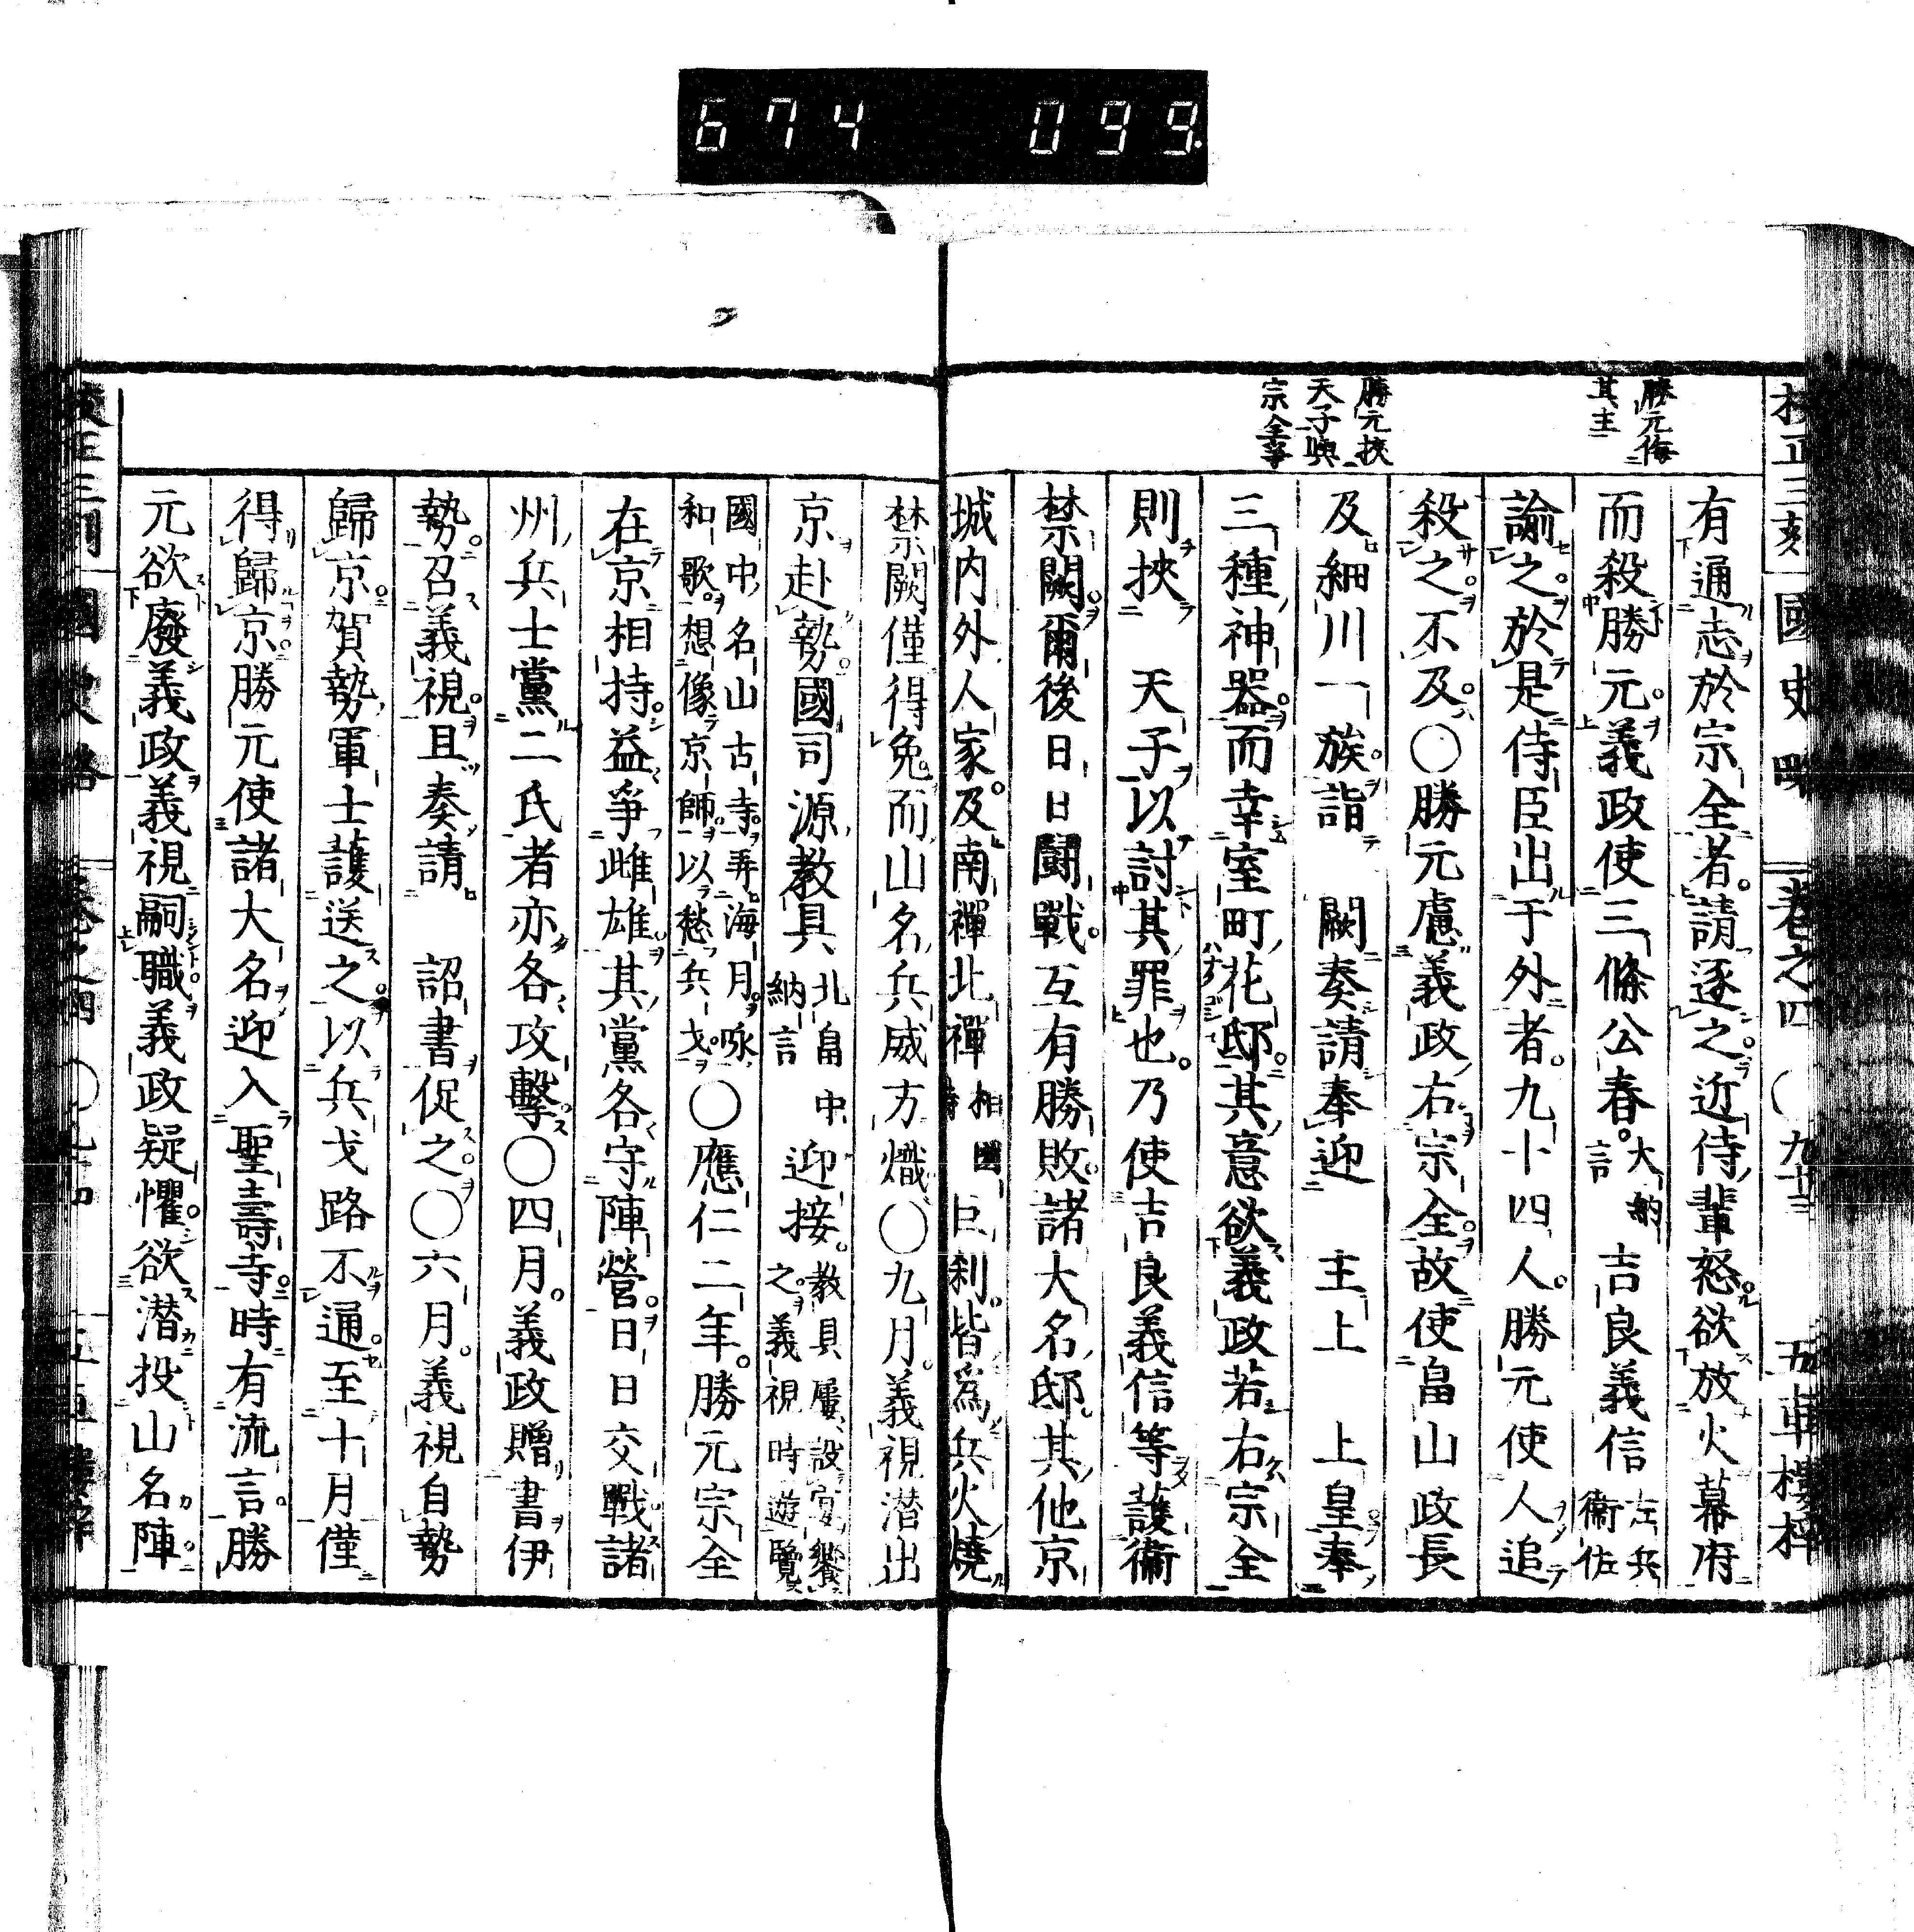 674 099.
校正三刻 國史略 卷之四 〇九十三 五車樓梓
勝元侮
其主
勝元挾
天子與
宗全爭
有通志於宗全者請逐之近侍輩怒欲放火幕府
而殺勝元義政使三條公春大納言吉良義信左兵衞佐
諭之於是侍臣出于外者九十四人勝元使人追
殺之不及〇勝元慮義政右宗全故使畠山政長
及細川一族詣 闕奏請奉迎 主上 上皇奉
三種神器而幸室町花邸其意欲義政若右宗全
則挾 天子以討其罪也乃使吉良義信等護衞
禁闕爾後日日鬪戰互有勝敗諸大名邸其他京
城内外人家及南禪北禪相國巨刹皆爲兵火燒
禁闕僅得免而山名兵威方熾〇九月義視潜出
京赴勢國司源教具北畠中納言迎接教具屢設宴饗之義視時遊覽
國中名山古寺弄海月咏和歌想像京師以愁兵戈〇應仁二年勝元宗全
在京相持益爭雌雄其黨各守陣營日日交戰諸
州兵士黨二氏者亦各攻擊〇四月義政贈書伊
勢召義視且奏請 詔書促之〇六月義視自勢
歸京賀勢軍士護送之以兵戈路不通至十月僅
得歸京勝元使諸大名迎入聖壽寺時有流言勝
元欲廢義政義視嗣職義政疑懼欲潜投山名陣